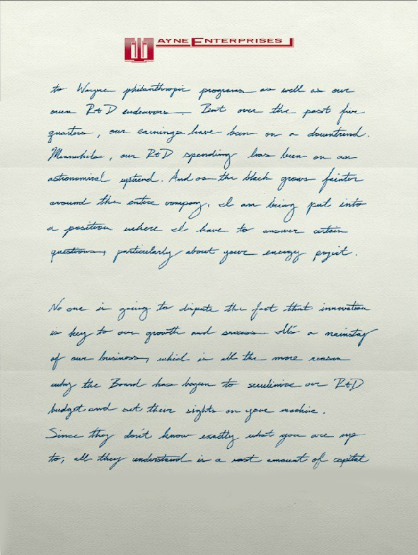 WAYNE ENTERPRISES
to Wayne philanthropic programs as well as our
own R&D endeavors — But over the past five
quarters, our earnings have been on a downtrend.
Meanwhile, our R&D spending has been on an
astronomical uptrend. And as the black grows fainter
around the entire company, I am being put into
a position where I have to answer certain
questions, particularly about your energy project.
No one is going to dispute the fact that innovation
is key to our growth and success. It's a mainstay
of our business, which is all the more reason
why the Board has begun to scrutinize our R&D
budget and set their sights on your machine.
Since they don't know exactly what you are up
to, all they understand is a vast amount of capital